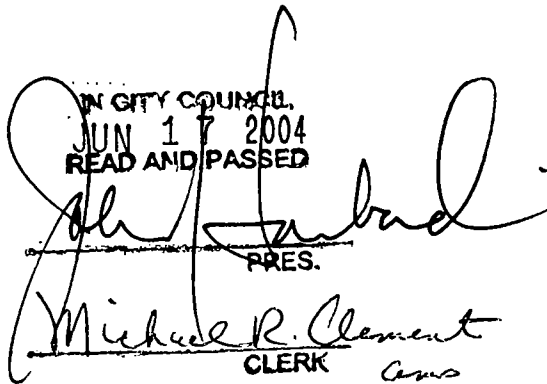 IN CITY COUNCIL,
JUN 17 2004
READ AND PASSED
PRES.
Michael R. Clement
CLERK